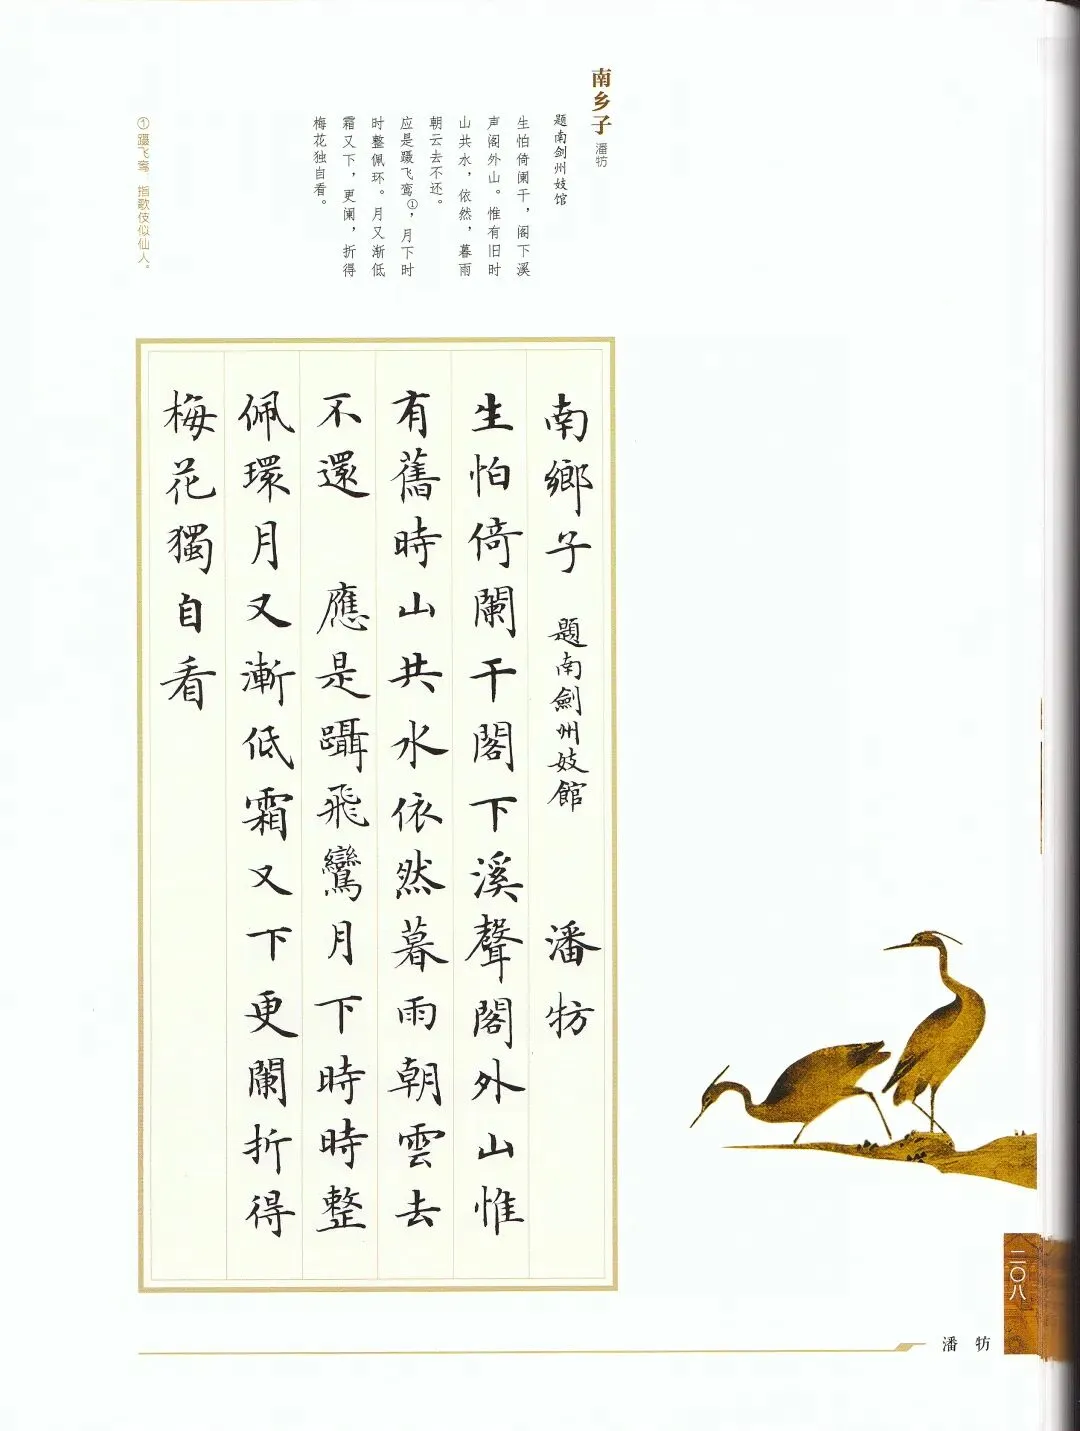 南乡子
潘牥
题南剑州妓馆
生怕倚阑干，阁下溪
声阁外山。惟有旧时
山共水，依然，暮雨
朝云去不还。
应是蹑飞鸾①，月下时
时整佩环。月又渐低
霜又下，更阑，折得
梅花独自看。
①蹑飞鸾，指歌伎似仙人。
南鄉子 題南劍州妓館 潘牥
生怕倚闌干閣下溪聲閣外山惟
有舊時山共水依然暮雨朝雲去
不還 應是躡飛鸞月下時時整
佩環月又漸低霜又下更闌折得
梅花獨自看
二〇八
潘牥